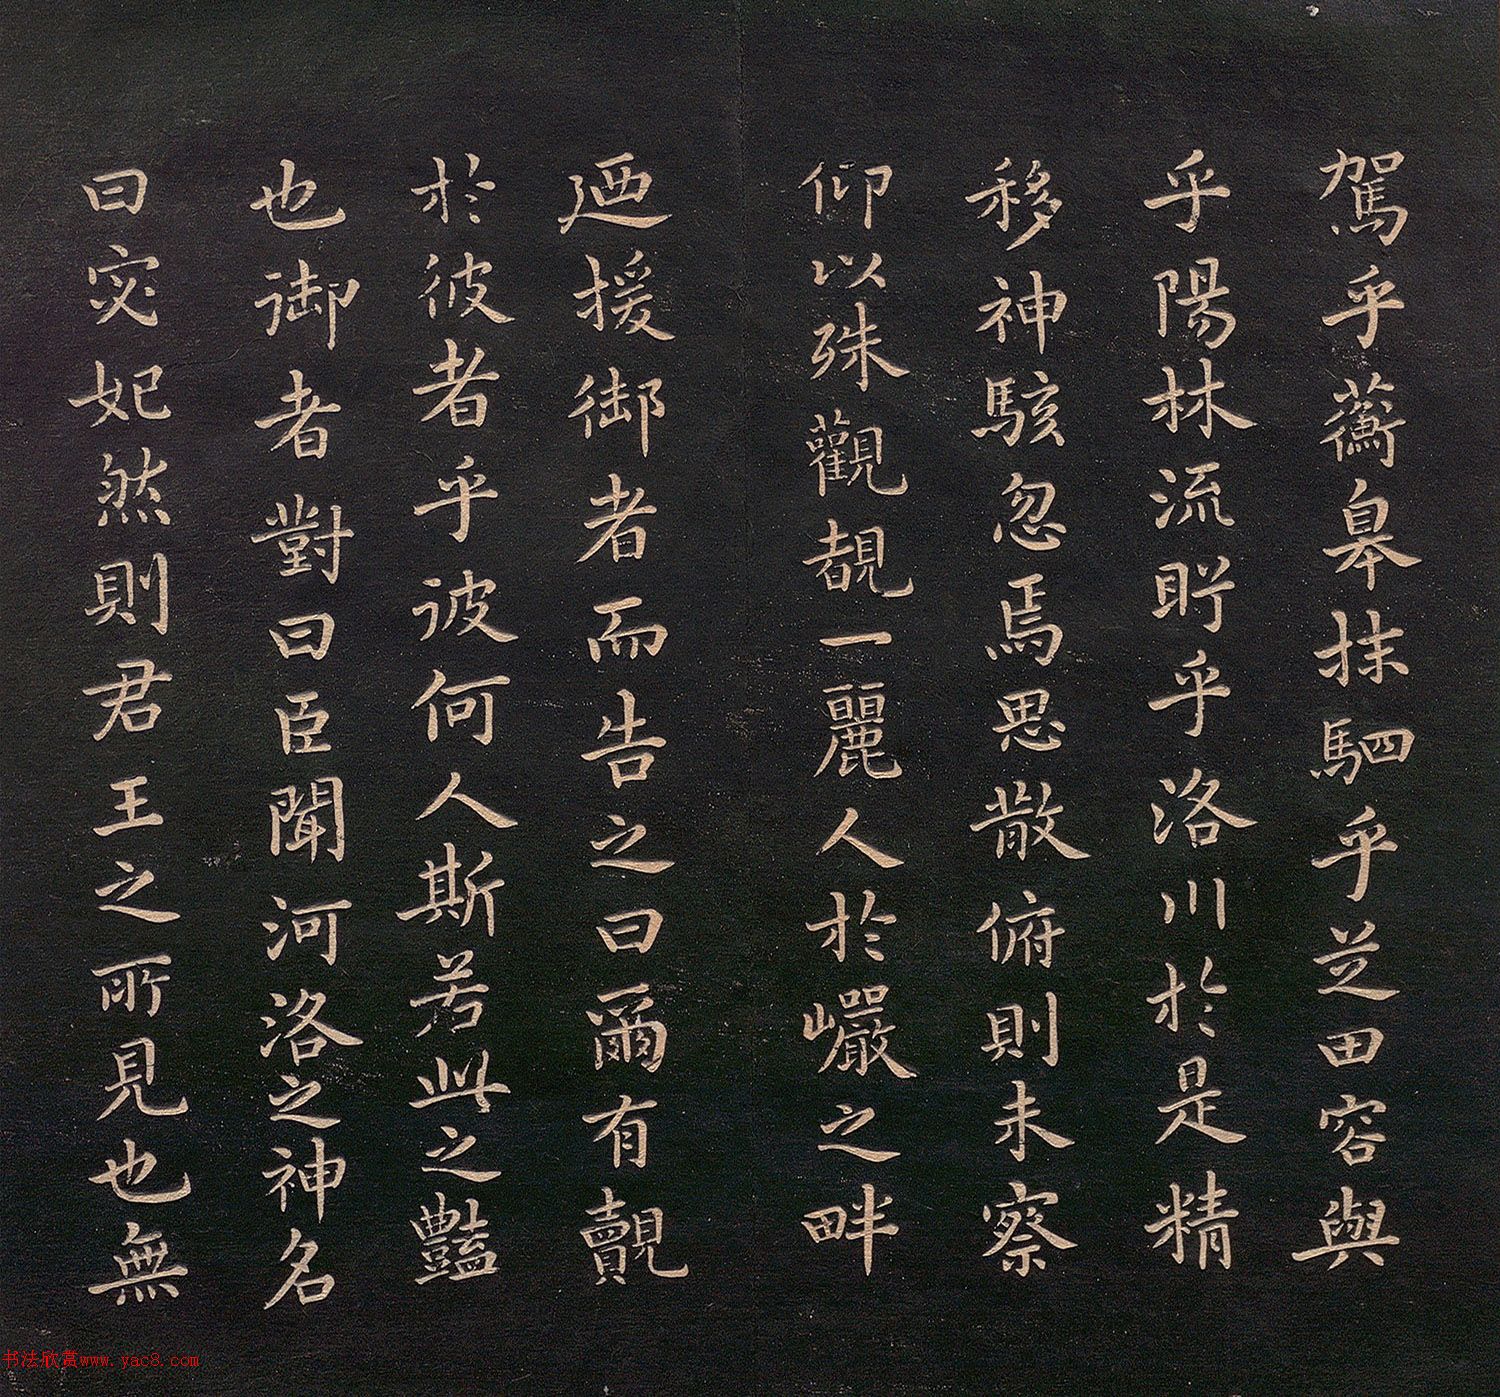 駕乎蘅皋抹駟乎芝田容與
乎陽林流眄乎洛川於是精
移神駭忽焉思散俯則未察
仰以殊觀覩一麗人於巗之畔
廼援御者而告之曰爾有覿
於彼者乎彼何人斯若此之豔
也御者對曰臣聞河洛之神名
曰宓妃然則君王之所見也無
书法欣赏www.yac8.com